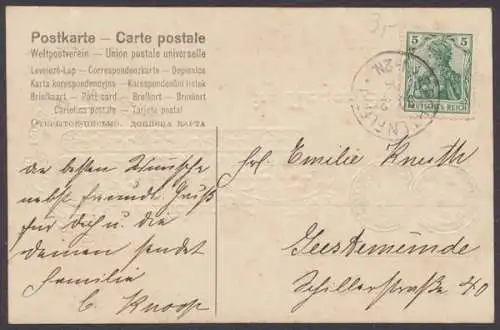 Postkarte – Carte postale
Weltpostverein – Union postale universelle
Levelező-Lap – Correspondenzkarte – Dopisnice
Karta korespondencyjna – Korespondenční lístek
Briefkaart – Post card – Brefkort – Brevkort
Cartolina postale – Tarjeta postal
Открытое письмо. дописна карта
3,-
5 5
DEUTSCHES REICH
die besten Wünsche
nebst freundl. Gruß
für Dich u. die
Deinen sendet
Familie
C. Knoop
Frl. Emilie
Geestemünde
Schillerstraße 40